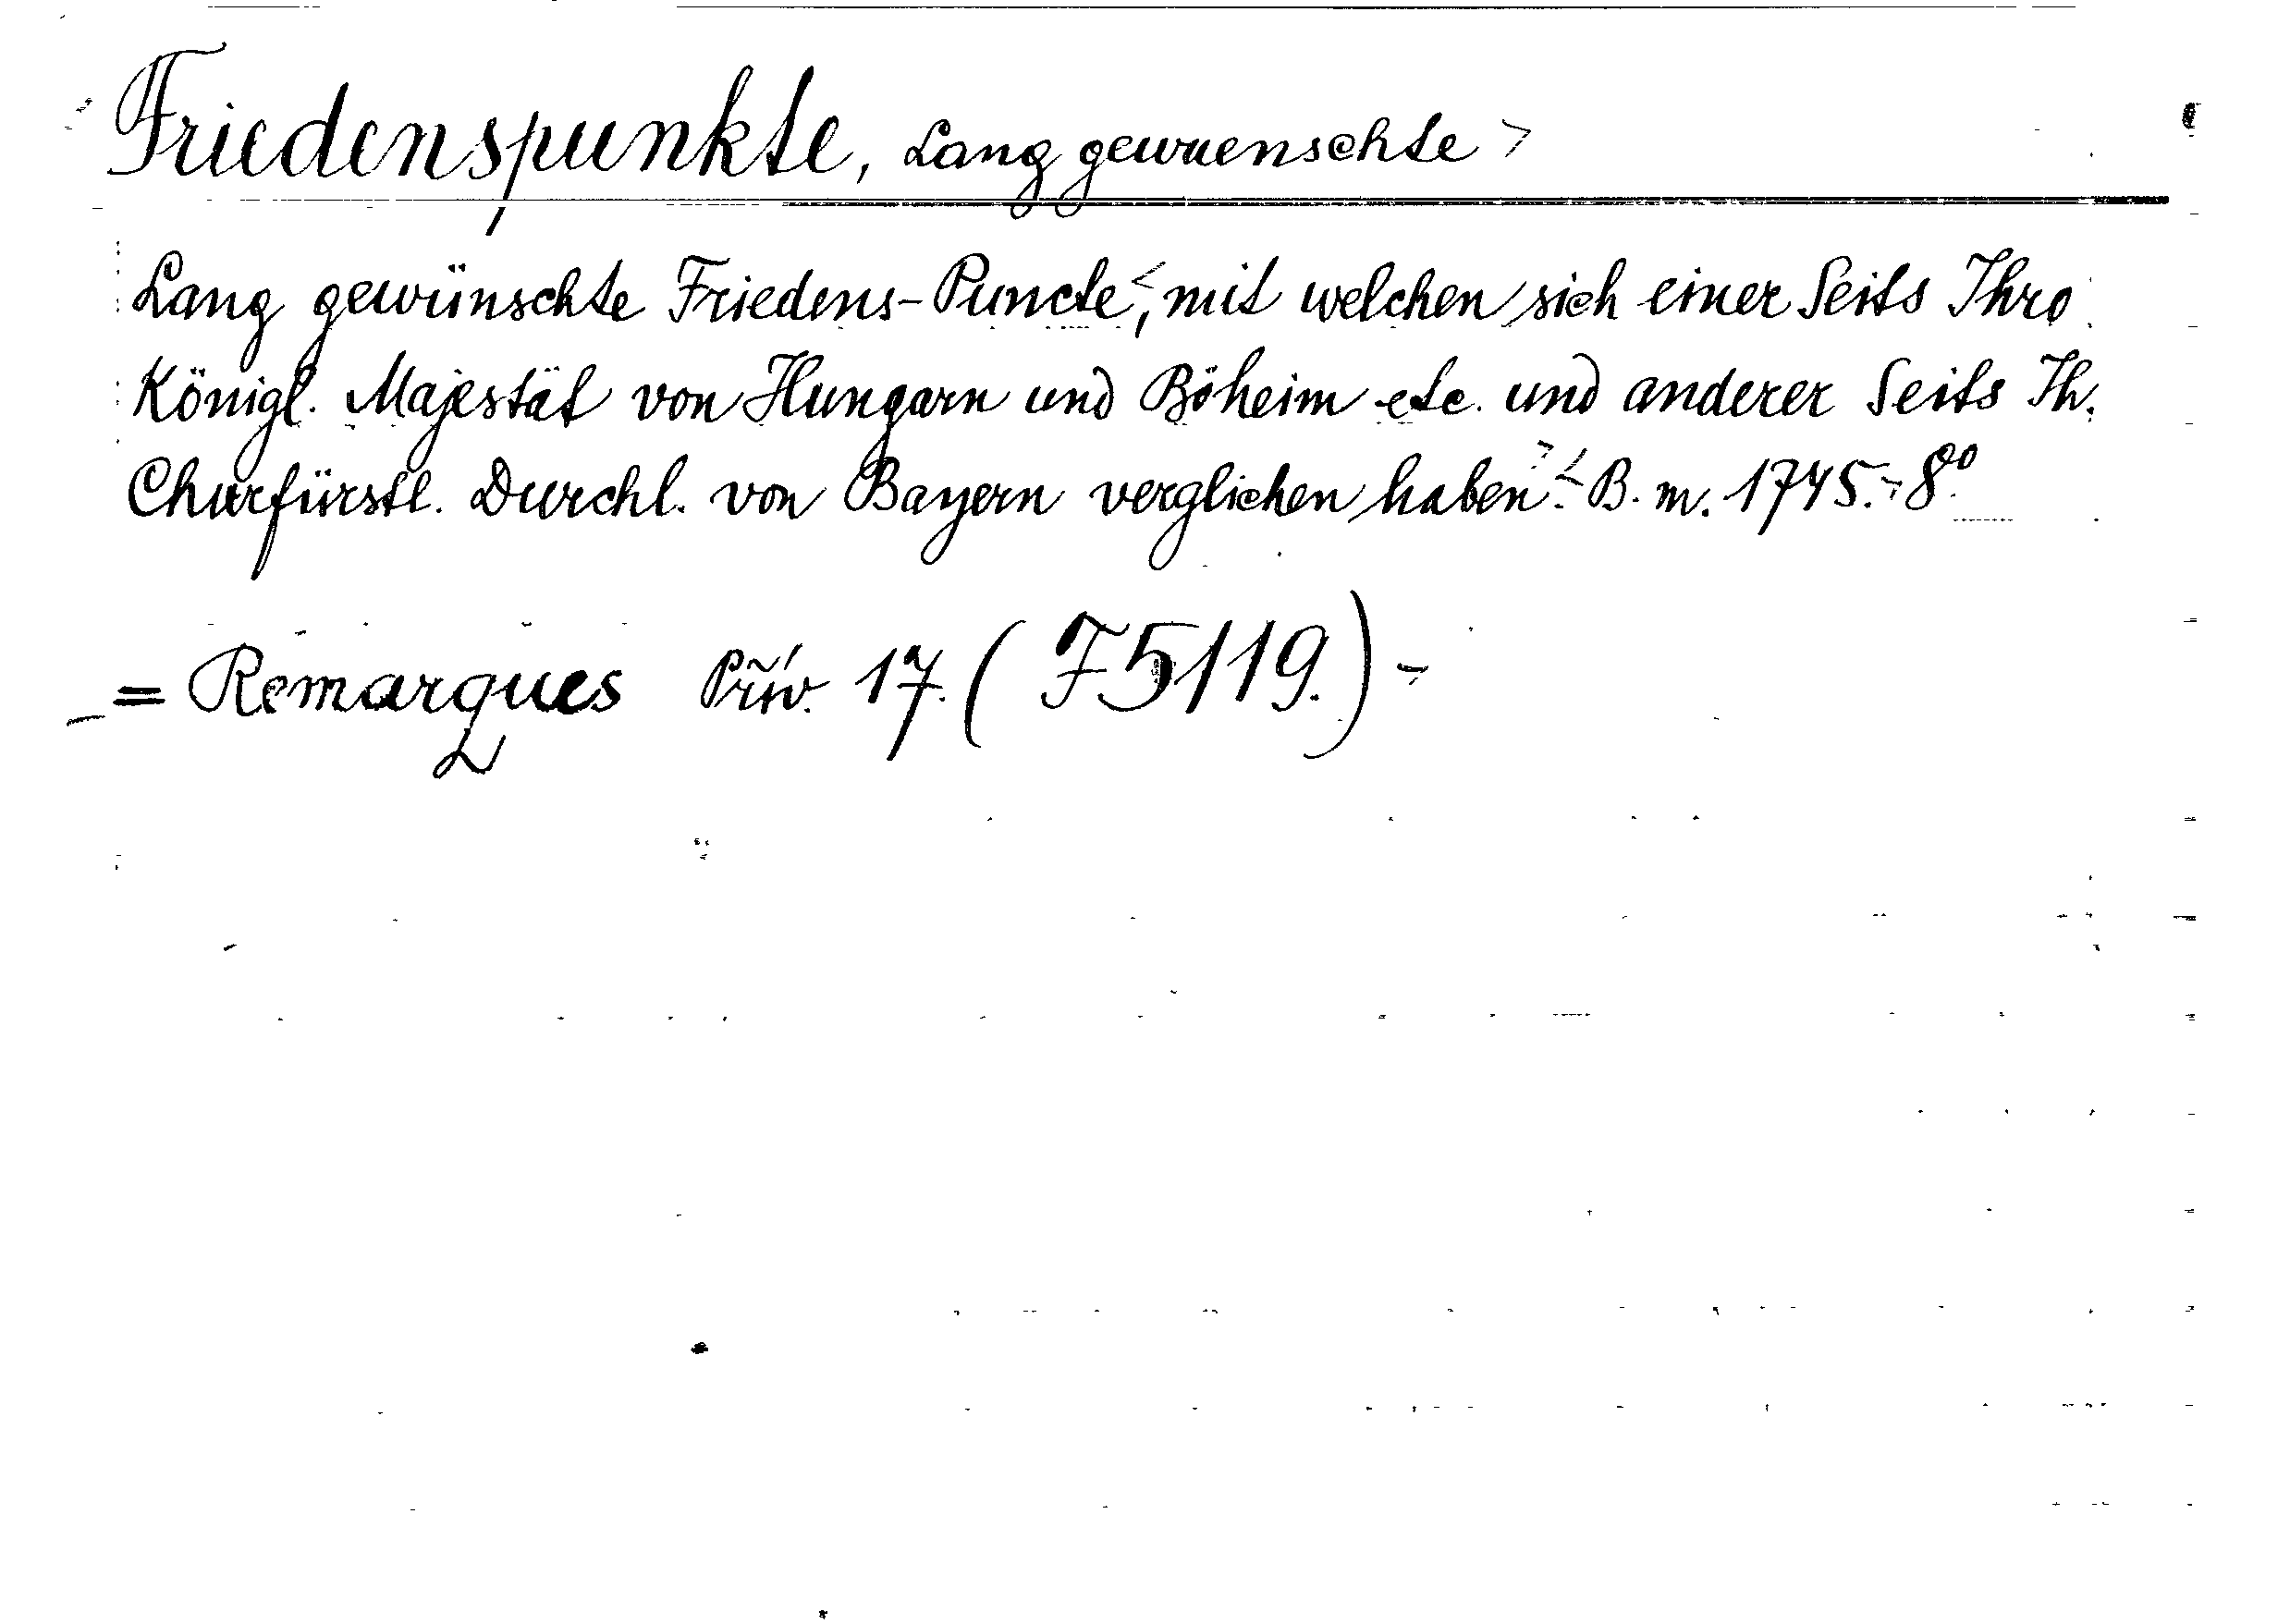 Friedenspunkte, Lang gewuenschte >
Lang gewünschte Friedens-Puncte<, mit welchen sich einer Seits Ihro
Königl. Majestät von Hungarn und Böheim etc. und anderer Seits Ih.
Churfürstl. Durchl. von Bayern verglichen haben>.< B. m. 1745.- 8°.
= Remarques Přív. 17. (F5119.) -